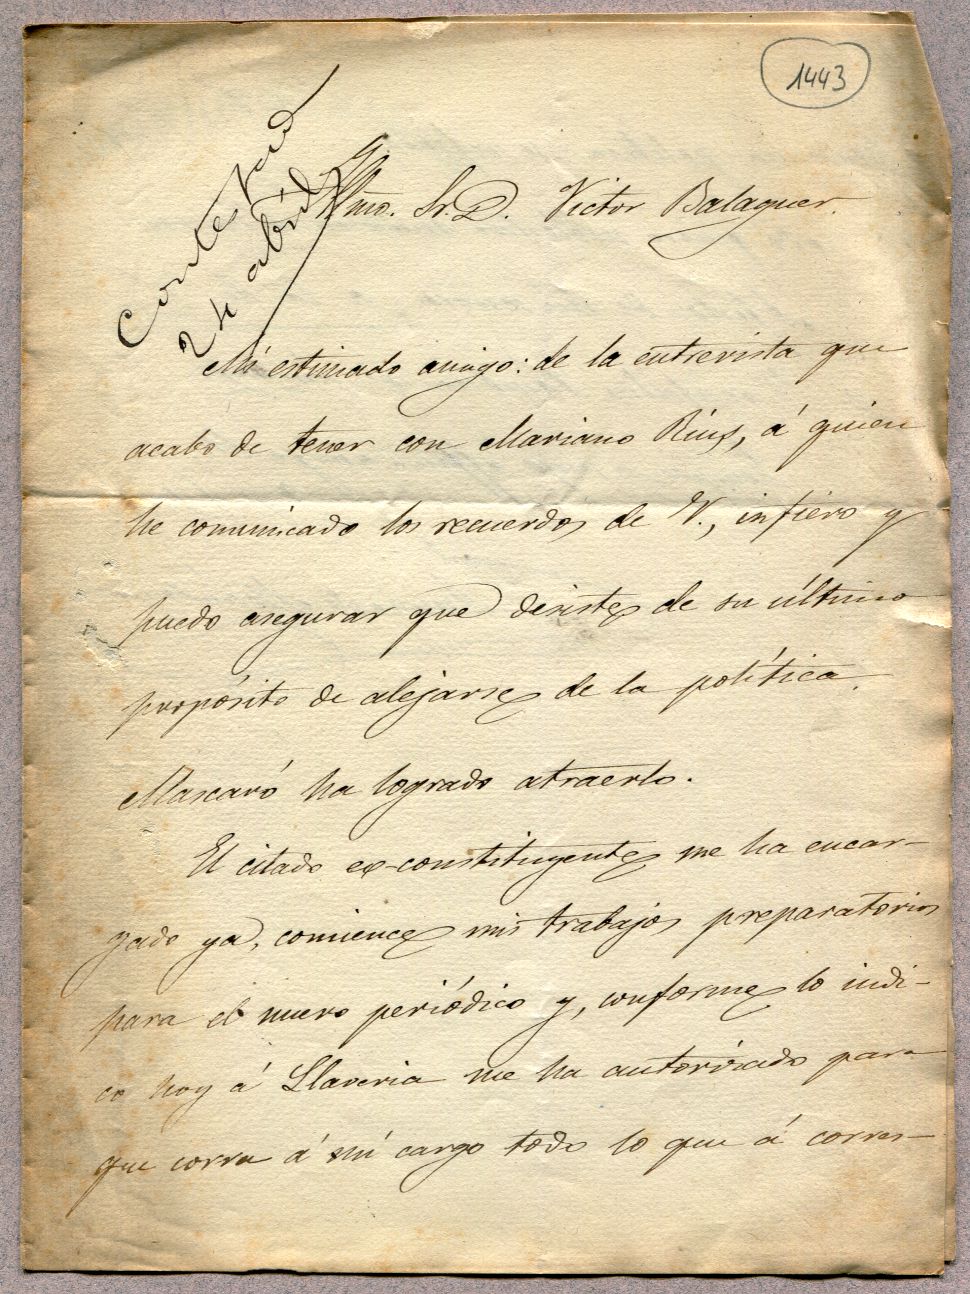 1443
Contestado
24 abril
Ylmo. Sr. D. Victor Balaguer.
Mi estimado amigo: de la entrevista que
acabo de tener con Mariano Rius, á quien
he comunicado los recuerdos de V., infiero y
puedo asegurar que desiste de su último
propósito de alejarse de la política.
Mascaró ha logrado atraerlo.
El citado ex-constituyente me ha encar-
gado ya, comience mis trabajos preparatorios
para el nuevo periódico y, conforme lo indi-
co hoy á Llaveria me ha autorizado para
que corra á mi cargo todo lo que á corres-